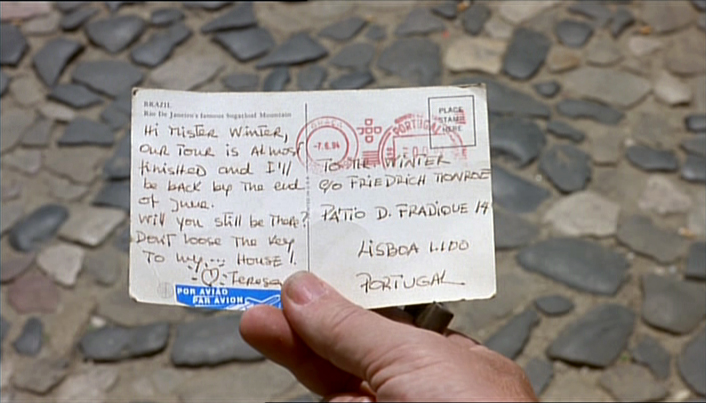 BRAZIL
Rio De Janeiro's famous Sugarloaf Mountain
Hi Mister Winter,
our tour is almost
finished and I'll
be back by the end
of June.
Will you still be there?
Don't loose the key
to my... HOUSE!
Teresa
POR AVIÃO
PAR AVION
-7.6.94
PORTUGAL
PLACE
STAMP
HERE
TO MR WINTER
c/o FRIEDRICH MONROE
PÁTIO D. FRADIQUE 19
LISBOA
PORTUGAL